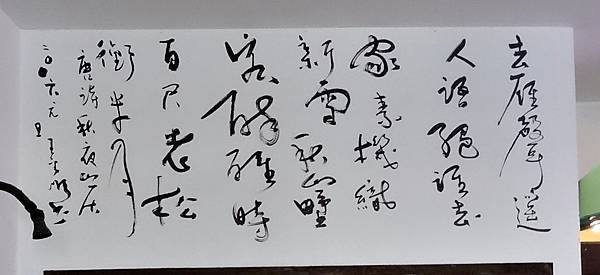 去雁聲遙
人語絕誰
家素機織
新雪秋山野
客醉醒時
百尺老松
銜半月
唐詩秋夜山居